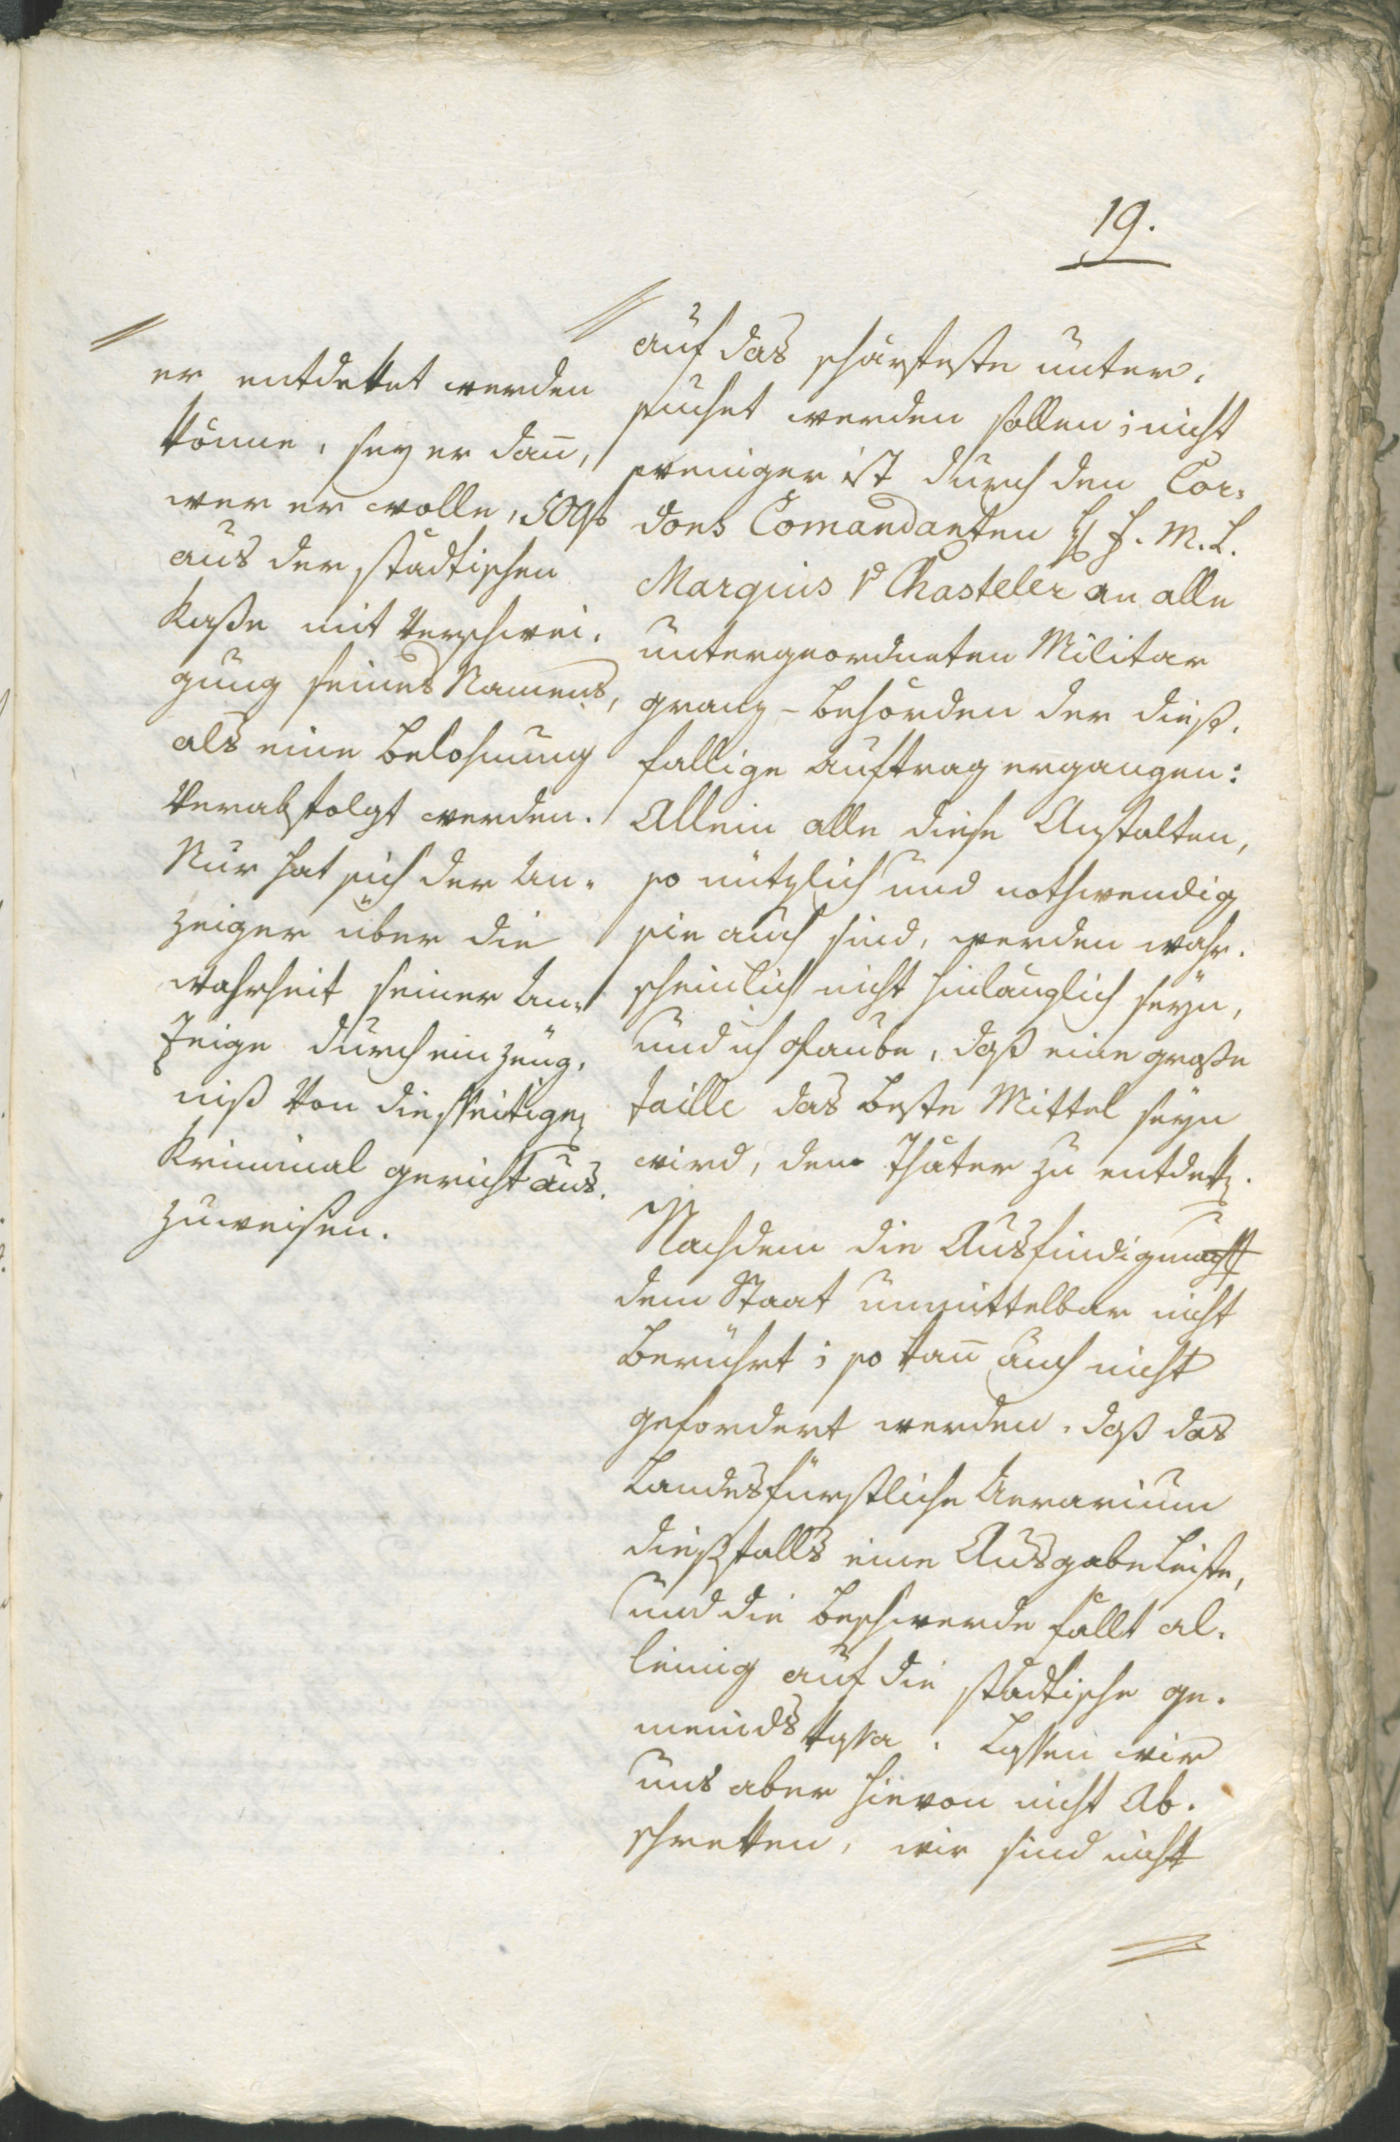 19.
er entdekket werden
könne, sey er dañ,
wer er wolle, 50
aus der städtischen
Kaße mit Verschwei„
gung seines Namens,
als eine Belohnung
Verabfolgt werden.
Nur hat sich der An„
zeiger über die
Wahrheit seiner An„
zeige durch ein Zeug„
niß Von diesseitigen
Kriminal gericht aus„
zuweisen.
auf das schärfeste unter„
suchet werden sollen; nicht
weniger ist durch den Cor„
dons Comandanten H F. M. L.
Marquis v Chasteler an alle
untergeordneten Militar
granz-Behörden der dieß„
fällige Auftrag ergangen:
Allein alle diese Anstalten,
so nützlich und nothwendig
sie auch sind, werden wahr„
scheinlich nicht hinlänglich seyn,
und ich glaube, daß eine große
taille das beste Mittel seyn
wird, den Thäter zu entdekken.
Nachdem die Ausfindigung
dem Staat unmittelbar nicht
berührt; so kañ auch nicht
gefordert werden, daß das
Landesfürstliche Aerarium
dießfalls eine Ausgabe leiste,
und die Beschwerde fällt al„
leinig auf die städtische ge„
meinds Kassa. Lassen wir
uns aber hievon nicht Ab„
schrekken, wir sind nicht